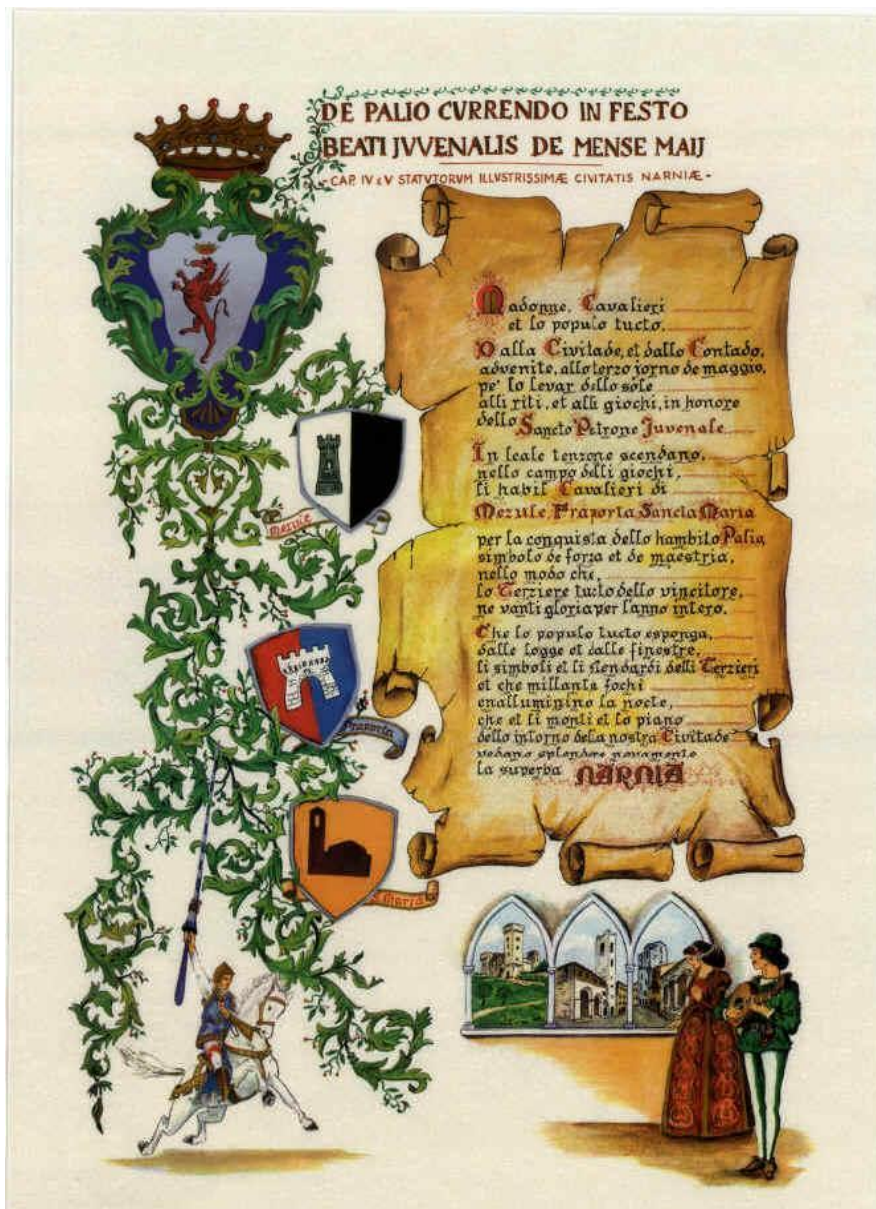 DE PALIO CVRRENDO IN FESTO
BEATI JVVENALIS DE MENSE MAIJ
- CAP. IV e V STATVTORVM ILLVSTRISSIMÆ CIVITATIS NARNIÆ -
Madonne, Cavalieri
et lo populo tucto.
Dalla Civitade, et dallo Contado,
advenite, allo terzo jorno de maggio,
pe' lo levar dello sole
alli riti, et alli giochi, in honore
dello Sancto Patrone Juvenale
In leale tenzone scendano,
nello campo delli giochi,
li habil Cavalieri di
Mezule, Fraporta, Sancta Maria
per la conquista dello hambito Palio
simbolo de forza et de maestria,
nello modo che,
lo Terziere tucto dello vincitore,
ne vanti gloria per l'anno intero.
Che lo populo tucto esponga,
dalle logge et dalle finestre,
li simboli et li stendardi delli Terzieri
et che millanta fochi
enalluminino la nocte,
che et li monti et lo piano
dello intorno della nostra Civitade
vedano splendere novamente
la superba NARNIA
Mezule
Fraporta
S. Maria